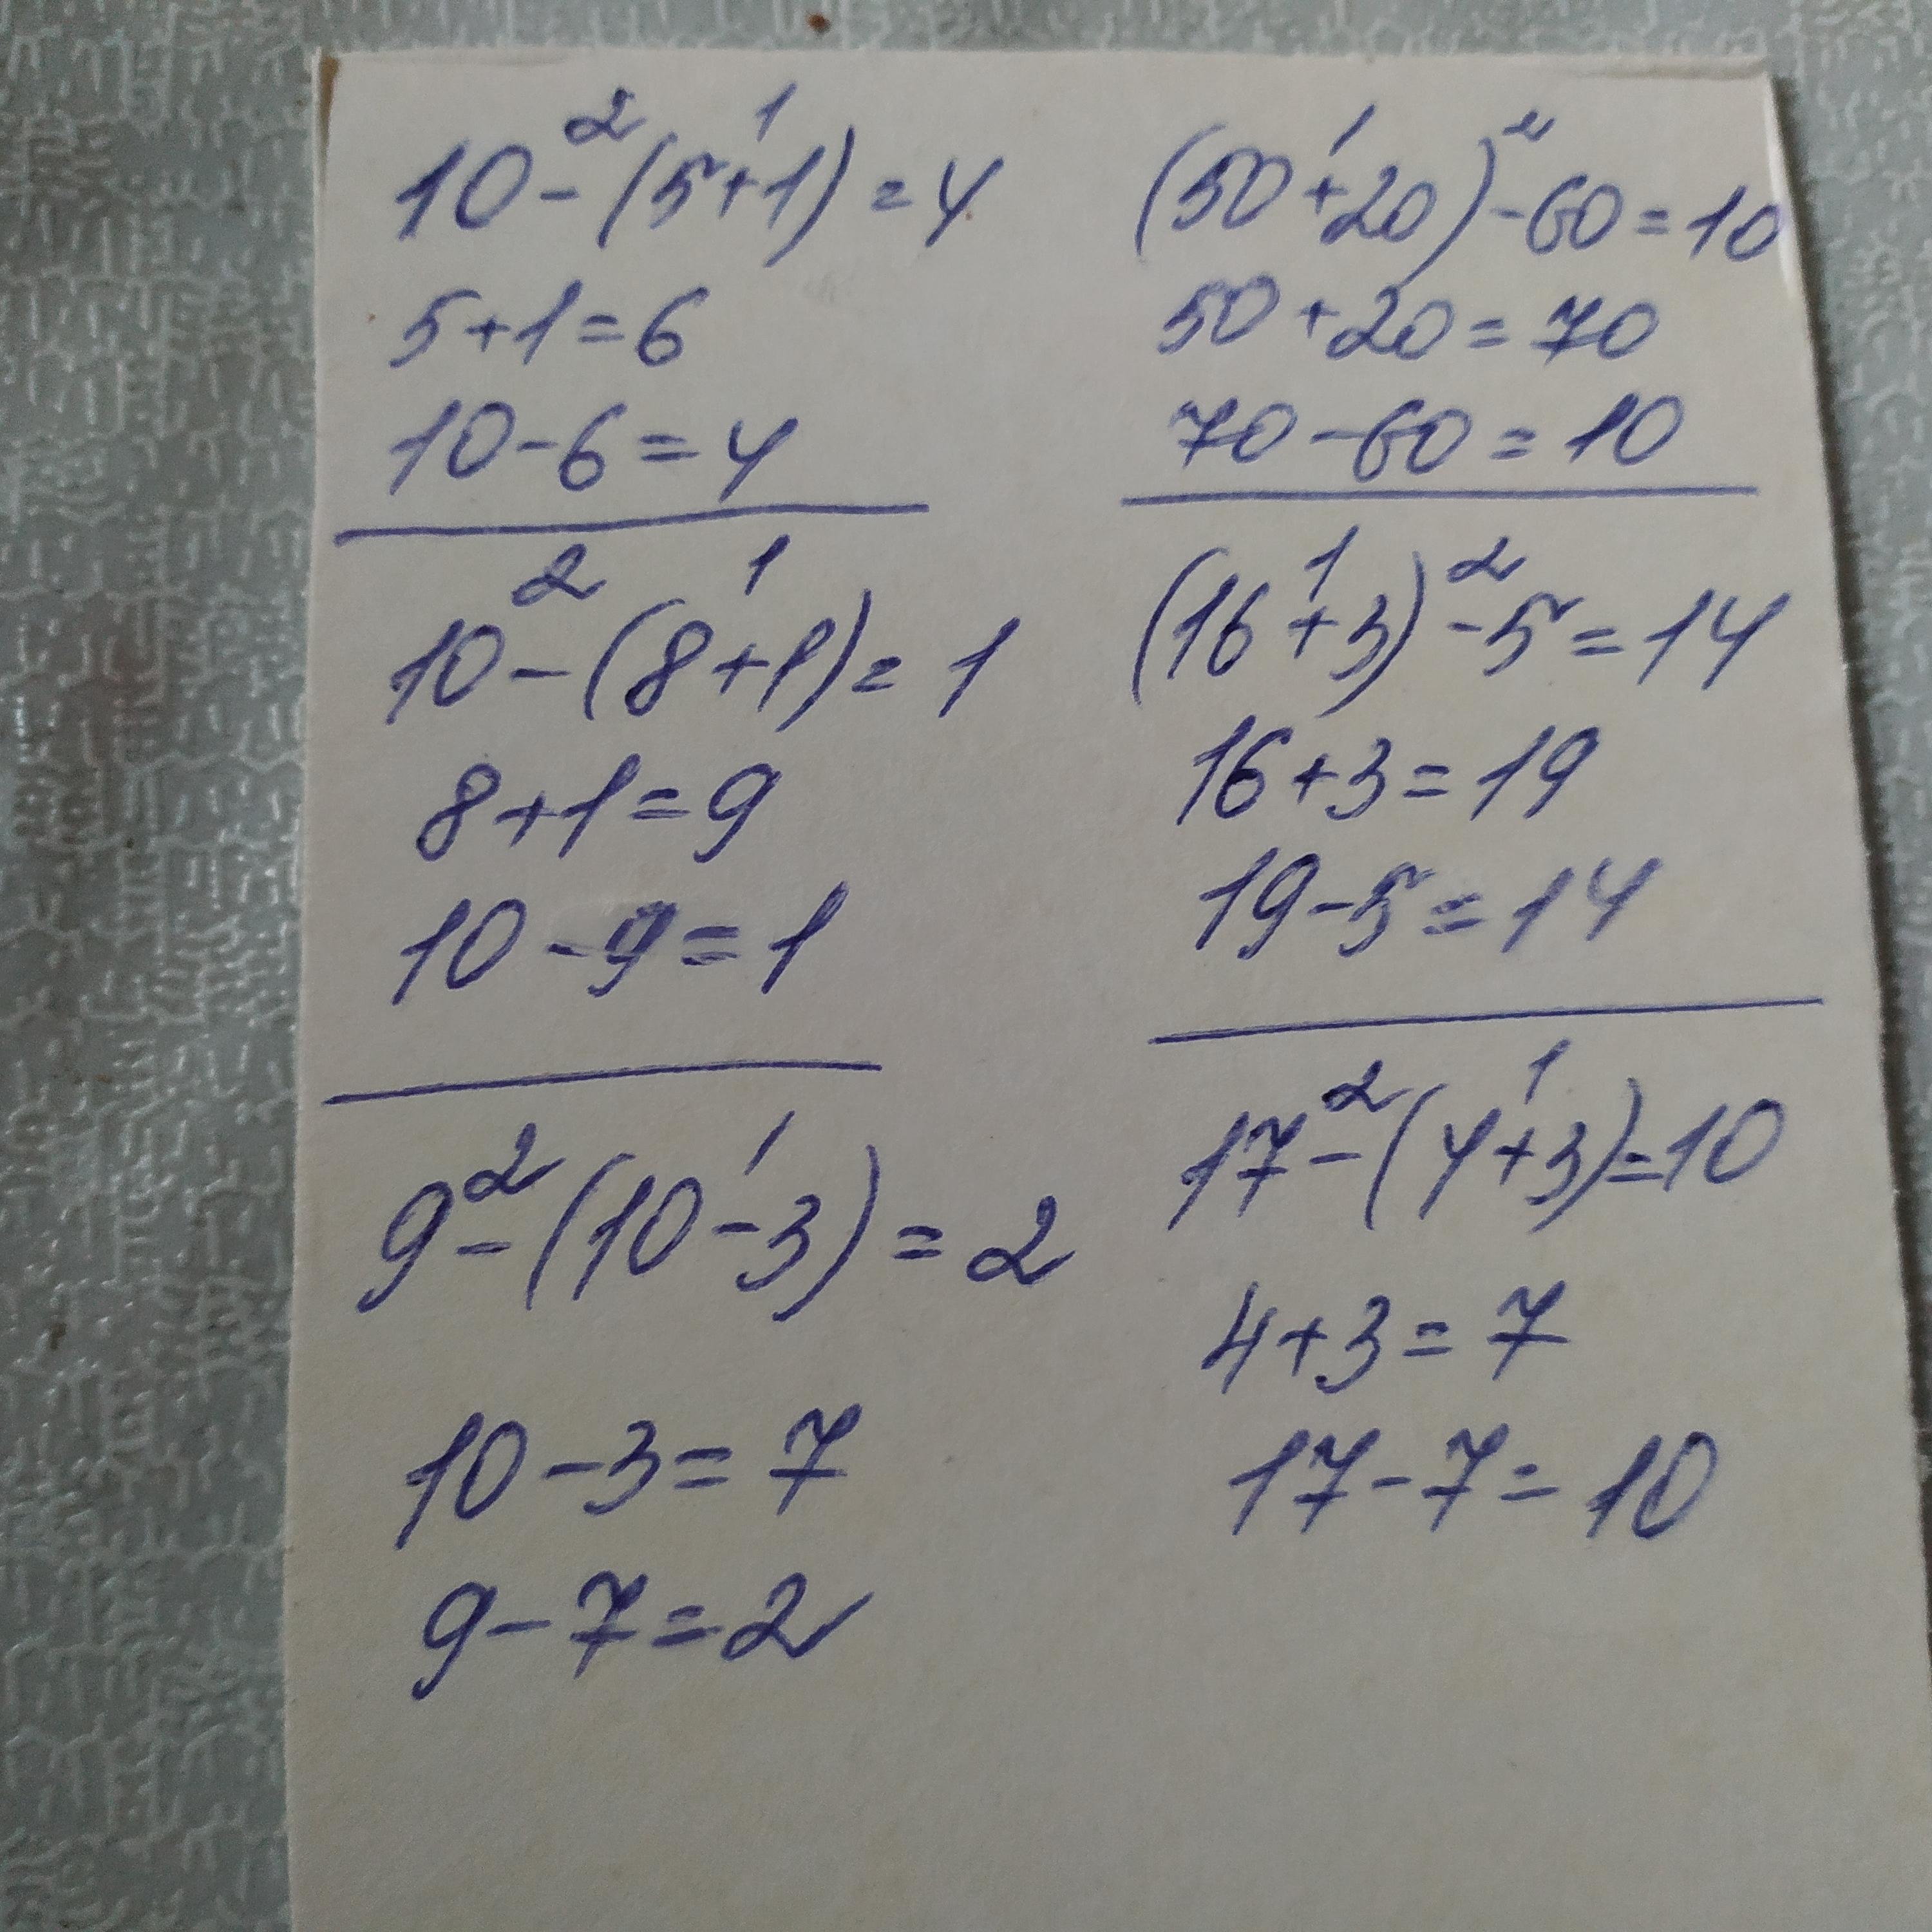 2 1
10-(5+1)=4
5+1=6
10-6=4
2 1
10-(8+1)=1
8+1=9
10-9=1
2 1
9-(10-3)=2
10-3=7
9-7=2
1 2
(50+20)-60=10
50+20=70
70-60=10
1 2
(16+3)-5=14
16+3=19
19-5=14
2 1
17-(4+3)=10
4+3=7
17-7=10